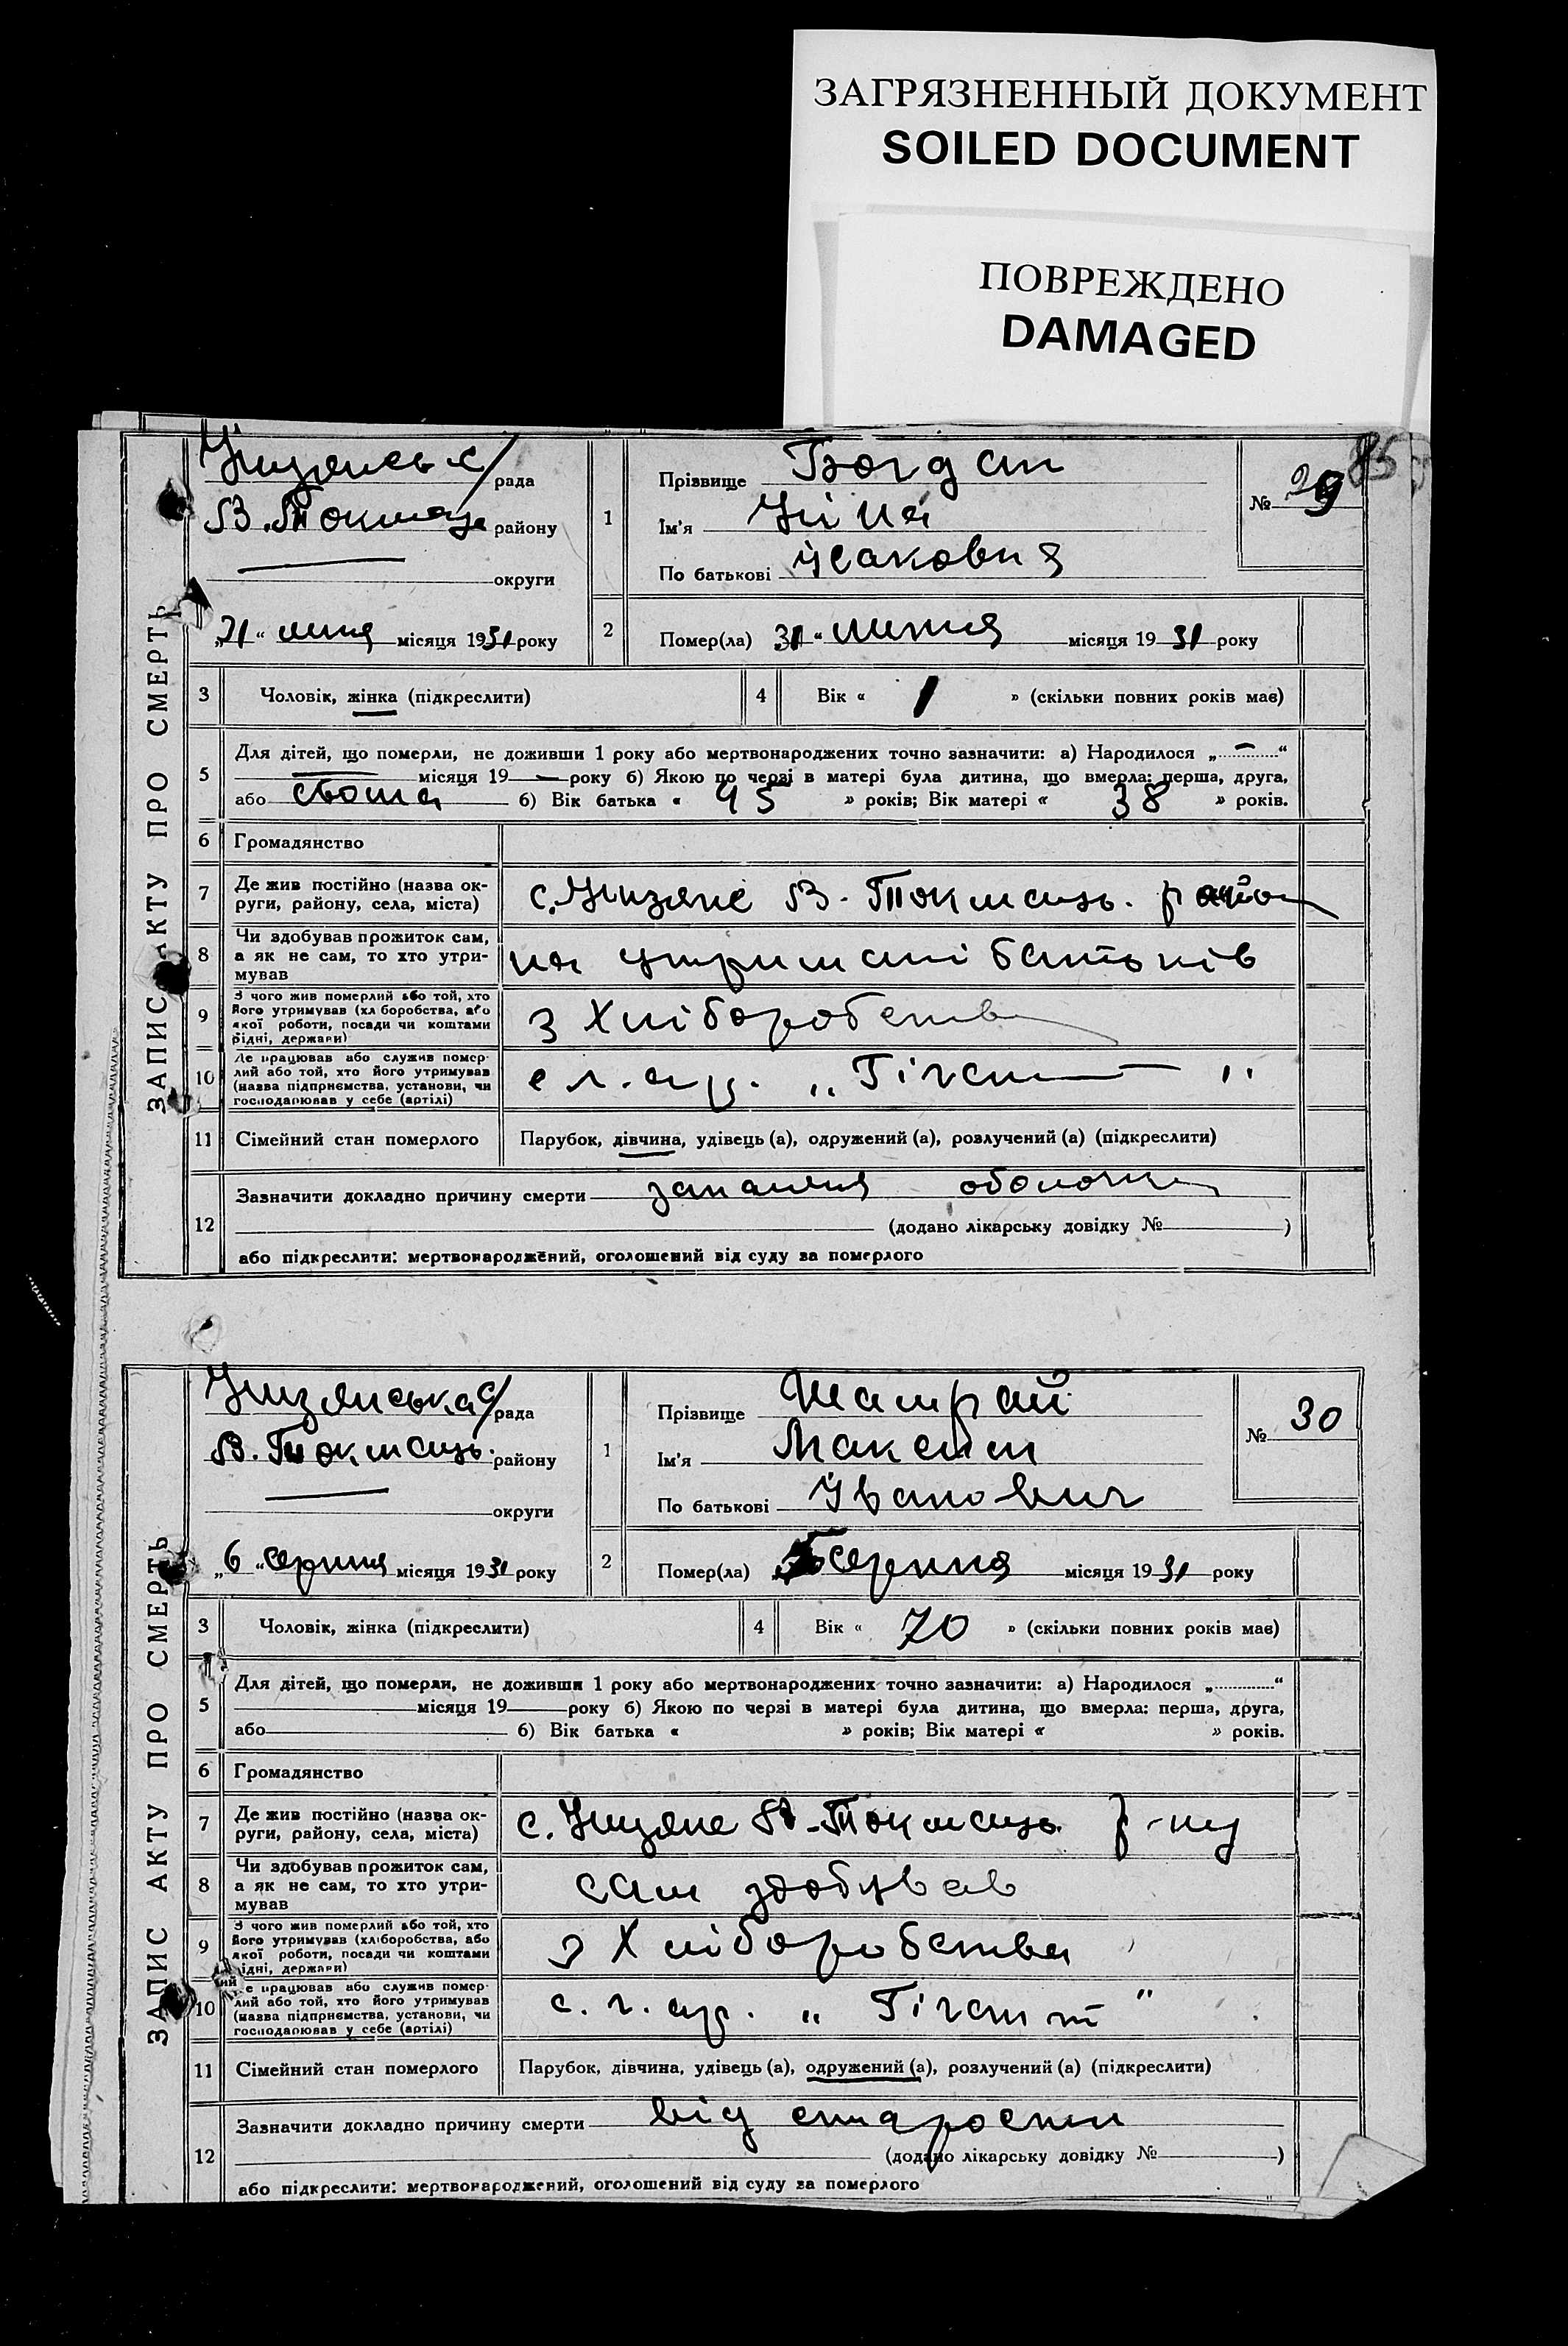 ЗАГРЯЗНЕННЫЙ ДОКУМЕНТ
SOILED DOCUMENT
ПОВРЕЖДЕНО
DAMAGED
85
ЗАПИС АКТУ ПРО СМЕРТЬ
рада
В. Токмац. району
округи
"31" липня місяця 1931 року
1
Прізвище Богдан
Ім'я Ніна
По батькові Ісаковна
№ 29
2
Помер(ла) 31 " липня місяця 19 31 року
3 Чоловік, жінка (підкреслити)
4 Вік « 1 » (скільки повних років має)
5
Для дітей, що померли, не доживши 1 року або мертвонароджених точно зазначити: а) Народилося „ — “
— місяця 19 — року б) Якою по черзі в матері була дитина, що вмерла: перша, друга,
або сьома б) Вік батька « 45 » років; Вік матері « 38 » років.
6 Громадянство
7
Де жив постійно (назва ок-
руги, району, села, міста)
В-Токмаць. район
8
Чи здобував прожиток сам,
а як не сам, то хто утри-
мував
на утримані батьків
9
З чого жив померлий або той, хто
його утримував (хліборобства, або
якої роботи, посади чи коштами
рідні, держави)
з Хліборобства
10
Де працював або служив помер-
лий або той, хто його утримував
(назва підприємства, установи, чи
господарював у себе (артілі)
с.г. ар. „Гігант"
11 Сімейний стан померлого
Парубок, дівчина, удівець (а), одружений (а), розлучений (а) (підкреслити)
12
Зазначити докладно причину смерти запалення оболочки
(додано лікарську довідку № )
або підкреслити: мертвонароджений, оголошений від суду за померлого
ЗАПИС АКТУ ПРО СМЕРТЬ
рада
В. Токмаць. району
округи
„6 “ серпня місяця 1931 року
1
Прізвище Шамрай
Ім'я Максим
По батькові Іванович
№ 30
2
Помер(ла) серпня місяця 19 31 року
3 Чоловік, жінка (підкреслити)
4 Вік « 70 » (скільки повних років має)
5
Для дітей, що померли, не доживши 1 року або мертвонароджених точно зазначити: а) Народилося „ “
місяця 19 року б) Якою по черзі в матері була дитина, що вмерла: перша, друга,
або б) Вік батька « » років; Вік матері « » років.
6 Громадянство
7
Де жив постійно (назва ок-
руги, району, села, міста)
В-Токмаць. р-ну
8
Чи здобував прожиток сам,
а як не сам, то хто утри-
мував
сам здобував
9
З чого жив померлий або той, хто
його утримував (хліборобства, або
якої роботи, посади чи коштами
рідні, держави)
з Хліборобства
10
Де працював або служив помер-
лий або той, хто його утримував
(назва підприємства, установи, чи
господарював у себе (артілі)
с. г. ар. „ Гігант "
11 Сімейний стан померлого
Парубок, дівчина, удівець (а), одружений (а), розлучений (а) (підкреслити)
12
Зазначити докладно причину смерти від старости
(додано лікарську довідку № )
або підкреслити: мертвонароджений, оголошений від суду за померлого